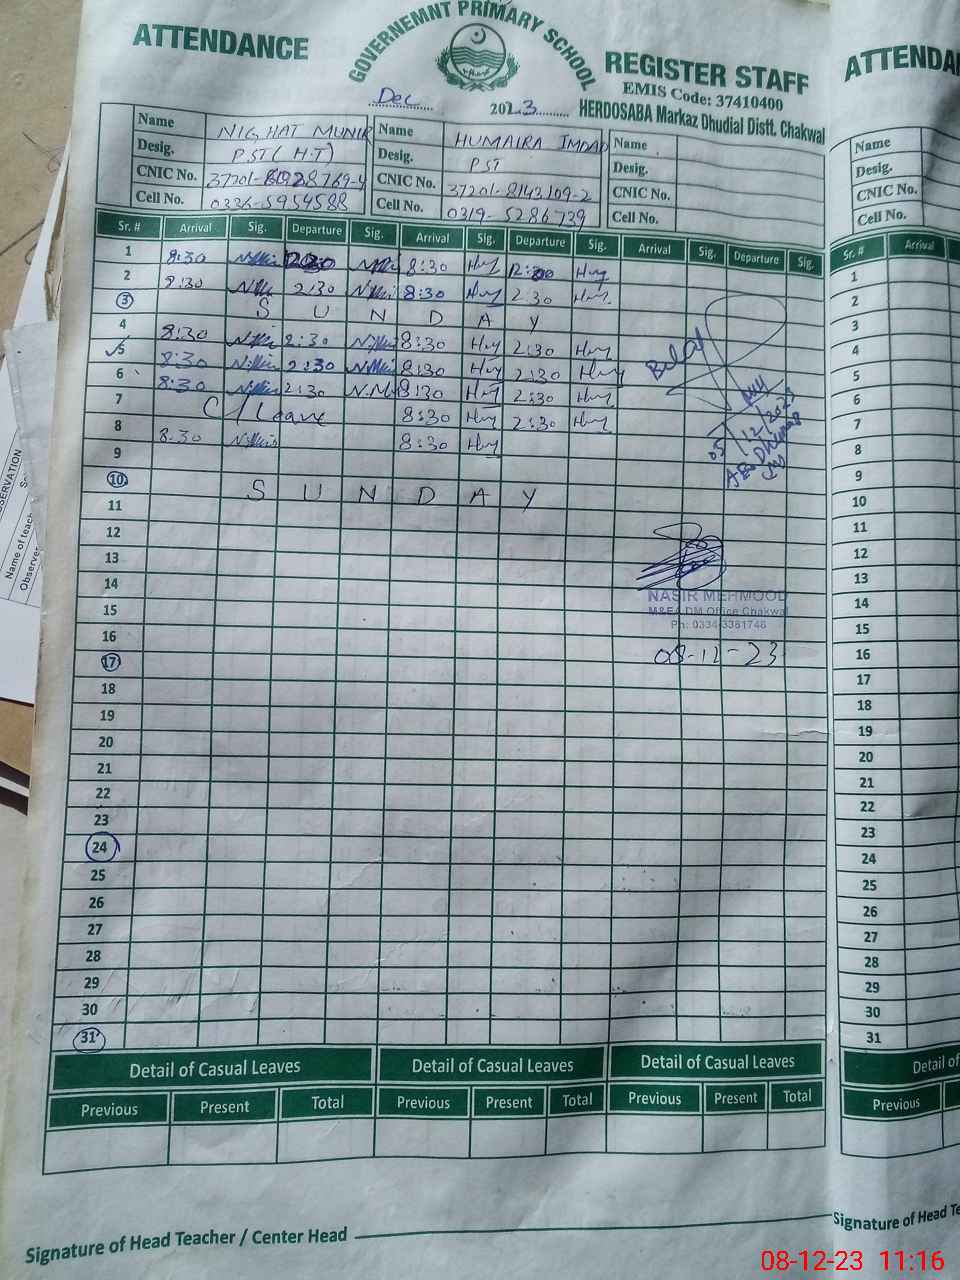 GOVERNEMNT PRIMARY SCHOOL
ATTENDANCE
REGISTER STAFF
ATTENDA
EMIS Code: 37410400
Dec 2023
HERDOSABA Markaz Dhudial Distt. Chakwal
Name NIGHAT MUNIR Name HUMAIRA IMDAD Name
Desig. PST (H.T) Desig. PST Desig.
CNIC No. CNIC No. 37201-8143109-2 CNIC No.
Cell No. 0336-5954588 Cell No. 0319-5286739 Cell No.
Name
Desig.
CNIC No.
Cell No.
Sr. # Arrival Sig. Departure Sig. Arrival Sig. Departure Sig. Arrival Sig. Departure Sig.
Sr. # Arrival
1 8:30 8:30 12:00
2 8:30 2:30 8:30 2:30
3 S U N D A Y
4 8:30 2:30 8:30 2:30
5 8:30 2:30 8:30 2:30
6 8:30 2:30 8:30 2:30
7 C/Leave 8:30 2:30
8 8:30 8:30
9
10 S U N D A Y
11
12
13
14
15
16
17
18
19
20
21
22
23
24
25
26
27
28
29
30
31
05/12/2023
NASIR MEHMOOD
M&EA DM Office Chakwal
Ph: 0334-3381746
08-12-23
1
2
3
4
5
6
7
8
9
10
11
12
13
14
15
16
17
18
19
20
21
22
23
24
25
26
27
28
29
30
31
Detail of Casual Leaves Detail of Casual Leaves Detail of Casual Leaves
Detail of
Previous Present Total Previous Present Total Previous Present Total
Previous
Signature of Head Teacher / Center Head
Signature of Head Te
OBSERVATION
Name of teach
Observer
08-12-23 11:16